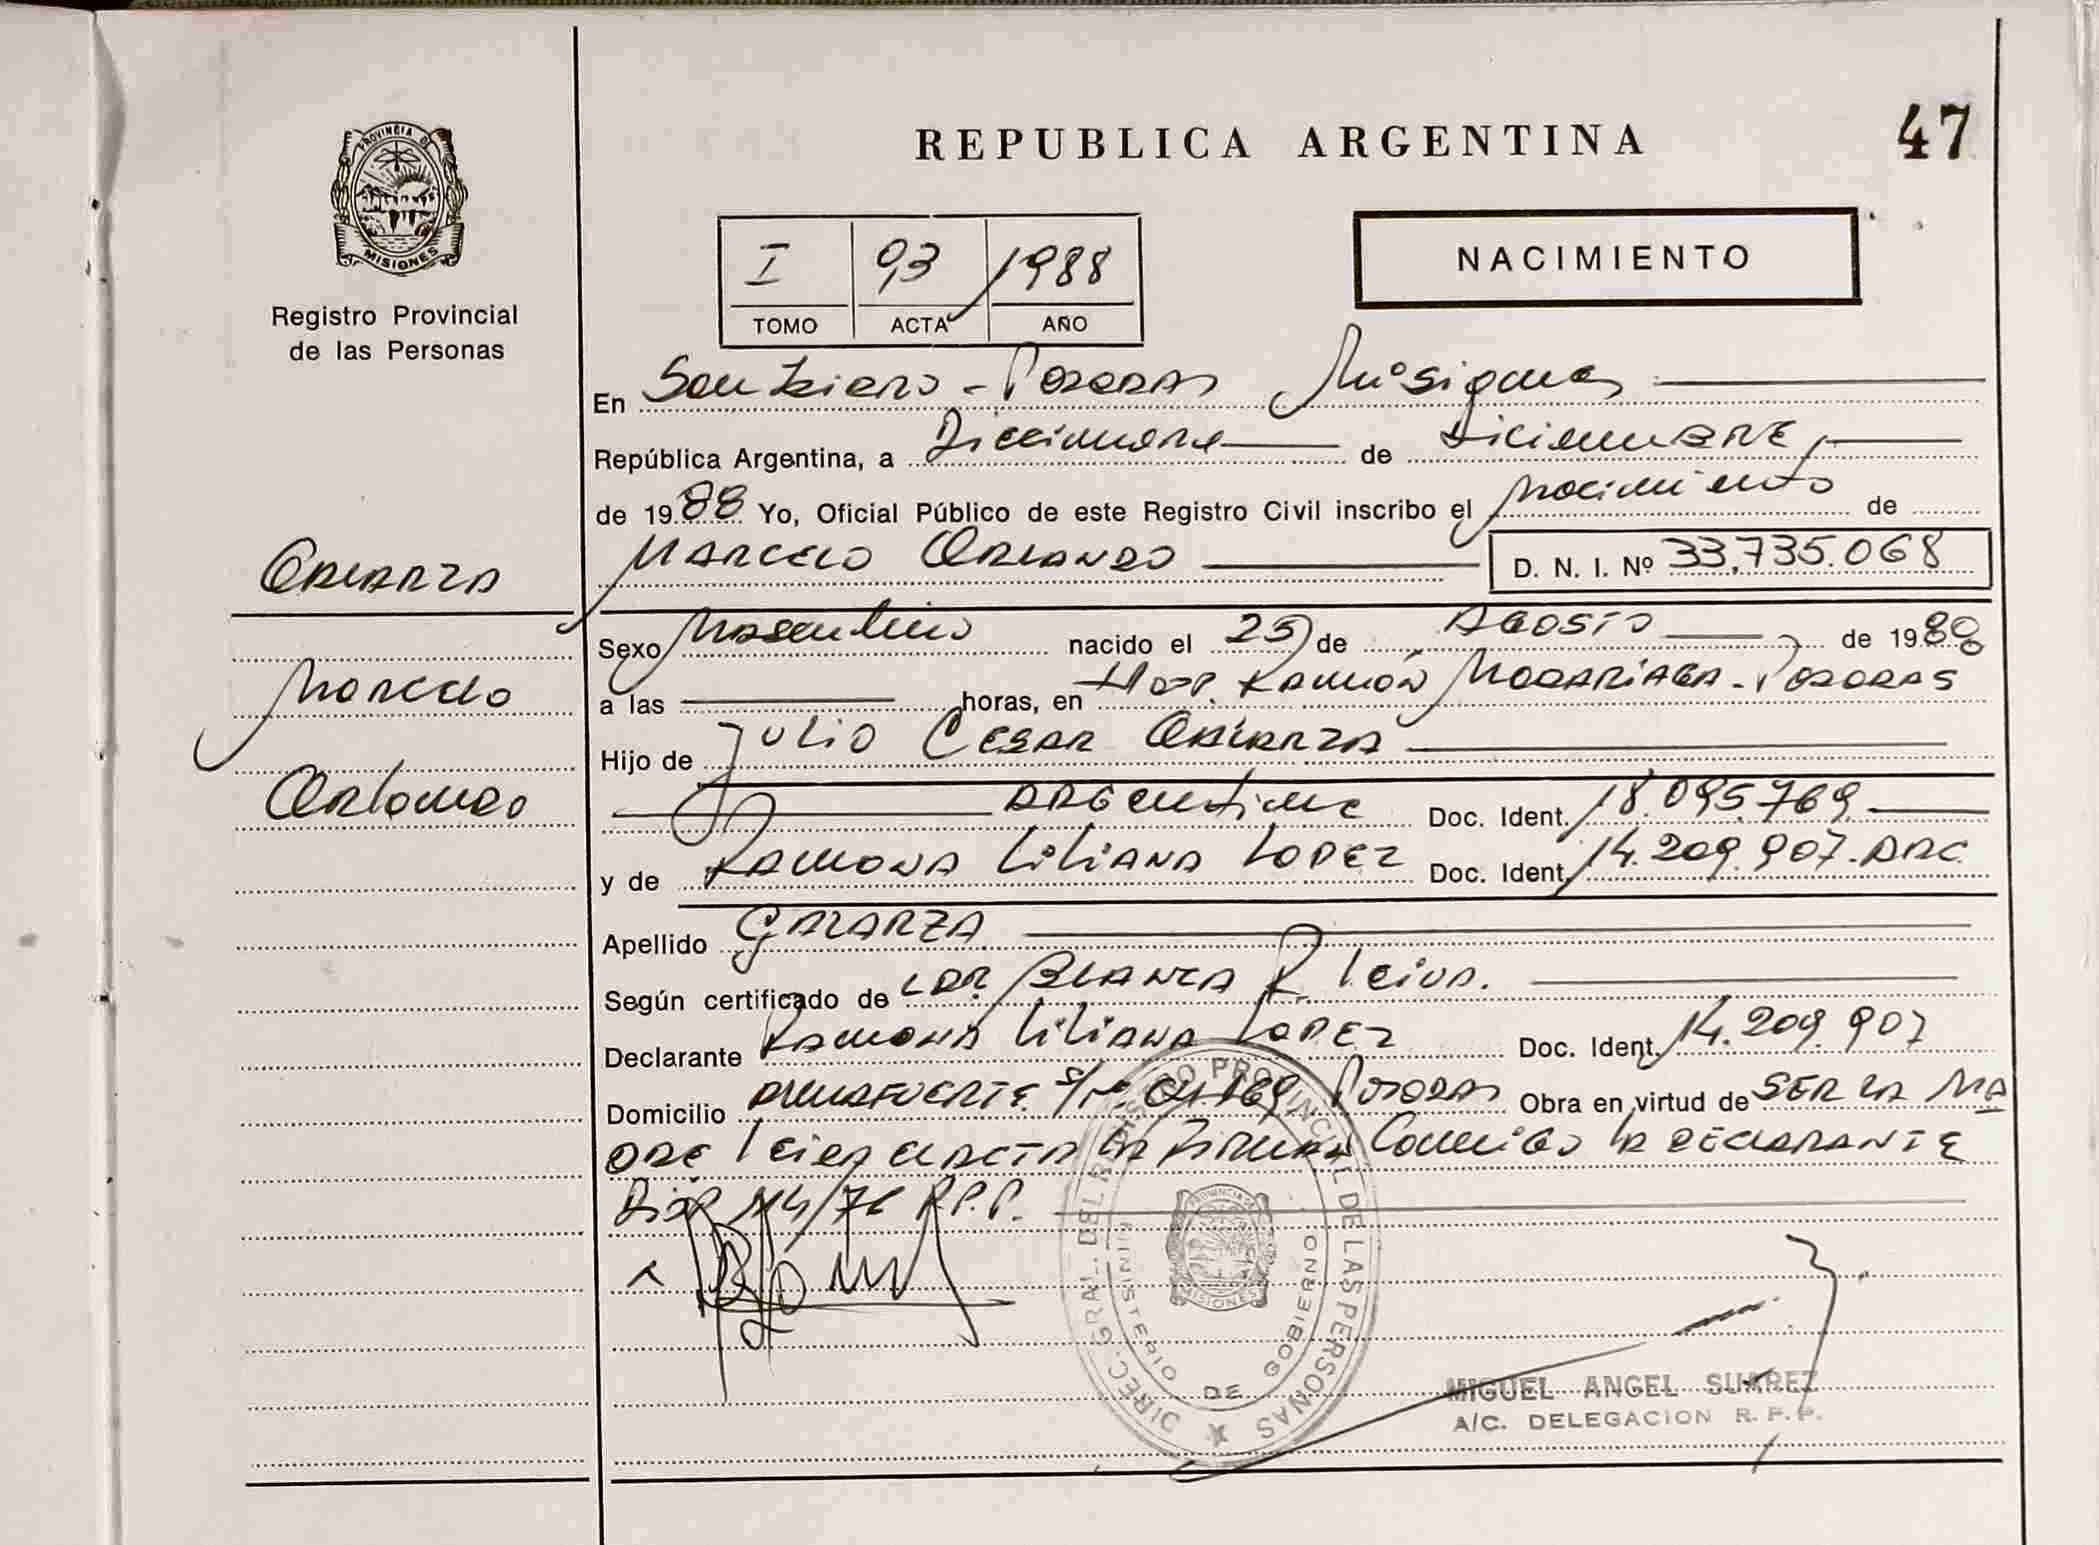 47
REPUBLICA ARGENTINA
PROVINCIA DE MISIONES
Registro Provincial
de las Personas
NACIMIENTO
I 93 1988
TOMO ACTA AÑO
En Posadas Misiones
República Argentina, a de Diciembre,
de 1988 Yo, Oficial Público de este Registro Civil inscribo el nacimiento de
Marcelo Orlando D. N. I. Nº 33.735.068
Marcelo
Orlando
Sexo Masculino nacido el 25 de Agosto de 1988
a las horas, en Hosp. Ramón Madariaga - Posadas
Hijo de Julio Cesar
Argentino Doc. Ident. 18.095.769
y de Ramona Liliana Lopez Doc. Ident. 14.209.907. ARG.
Apellido GALARZA
Según certificado de Blanca R. Leiva.
Declarante Ramona Liliana Lopez Doc. Ident. 14.209.907
Domicilio S/Nº Posadas Obra en virtud de ser la ma
dre Leida el acta la firma conmigo la declarante
R.P.P.
DIREC. GRAL. DEL REGISTRO PROVINCIAL DE LAS PERSONAS
MINISTERIO DE GOBIERNO
PROVINCIA DE MISIONES
MIGUEL ANGEL SUAREZ
A/C. DELEGACION R. P. P.